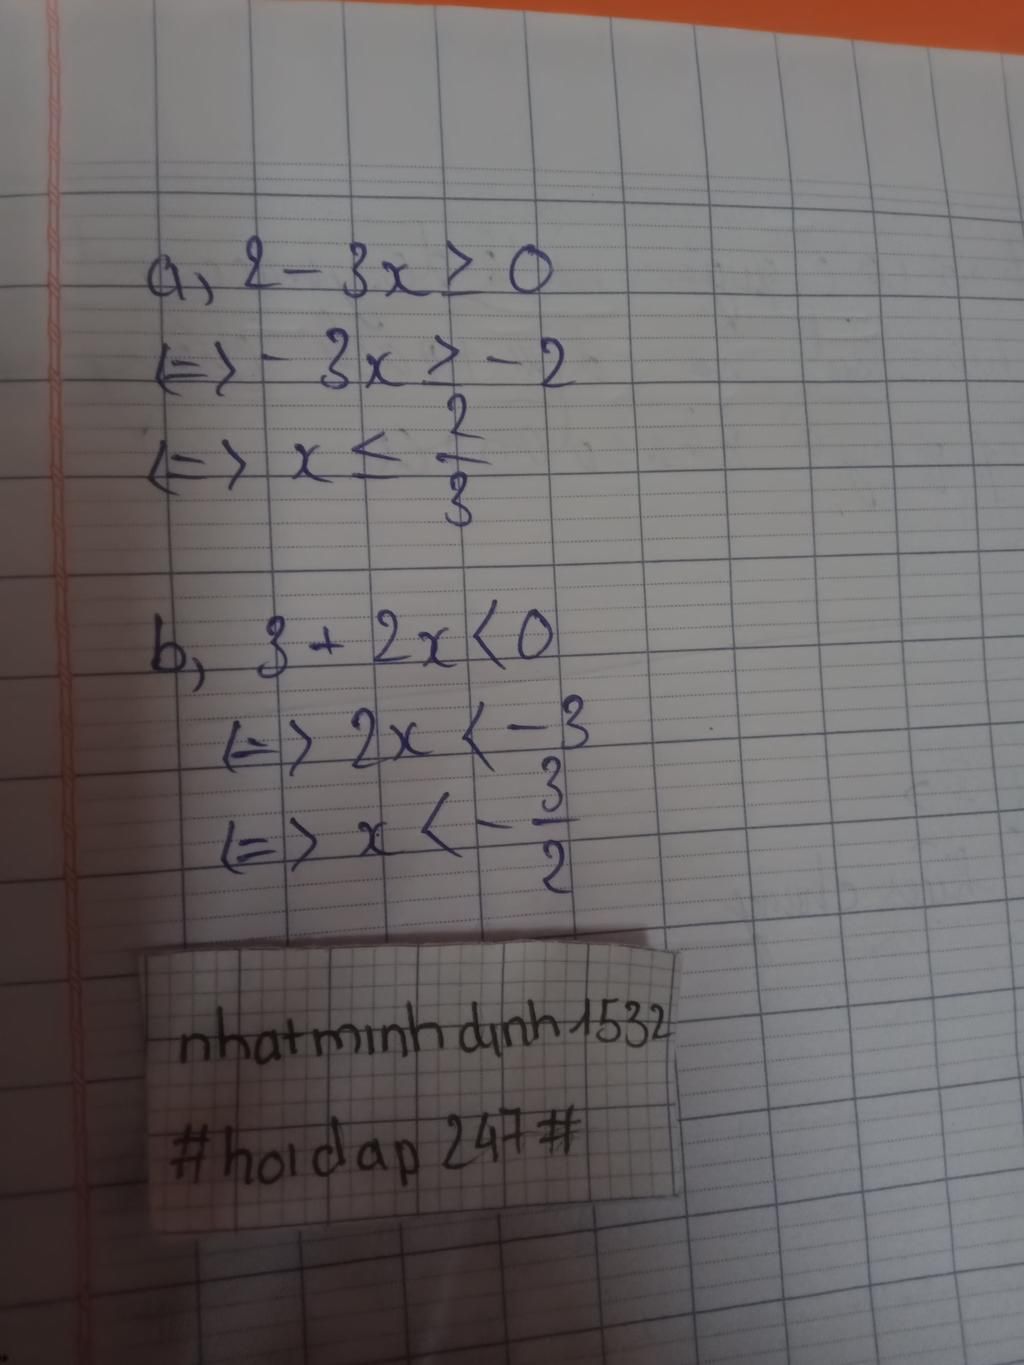 a, 2 - 3x ≥ 0
<=> - 3x ≥ - 2
<=> x ≤ 2/3
b, 3 + 2x < 0
<=> 2x < - 3
<=> x < - 3/2
nhatminhdinh1532
#hoidap247#